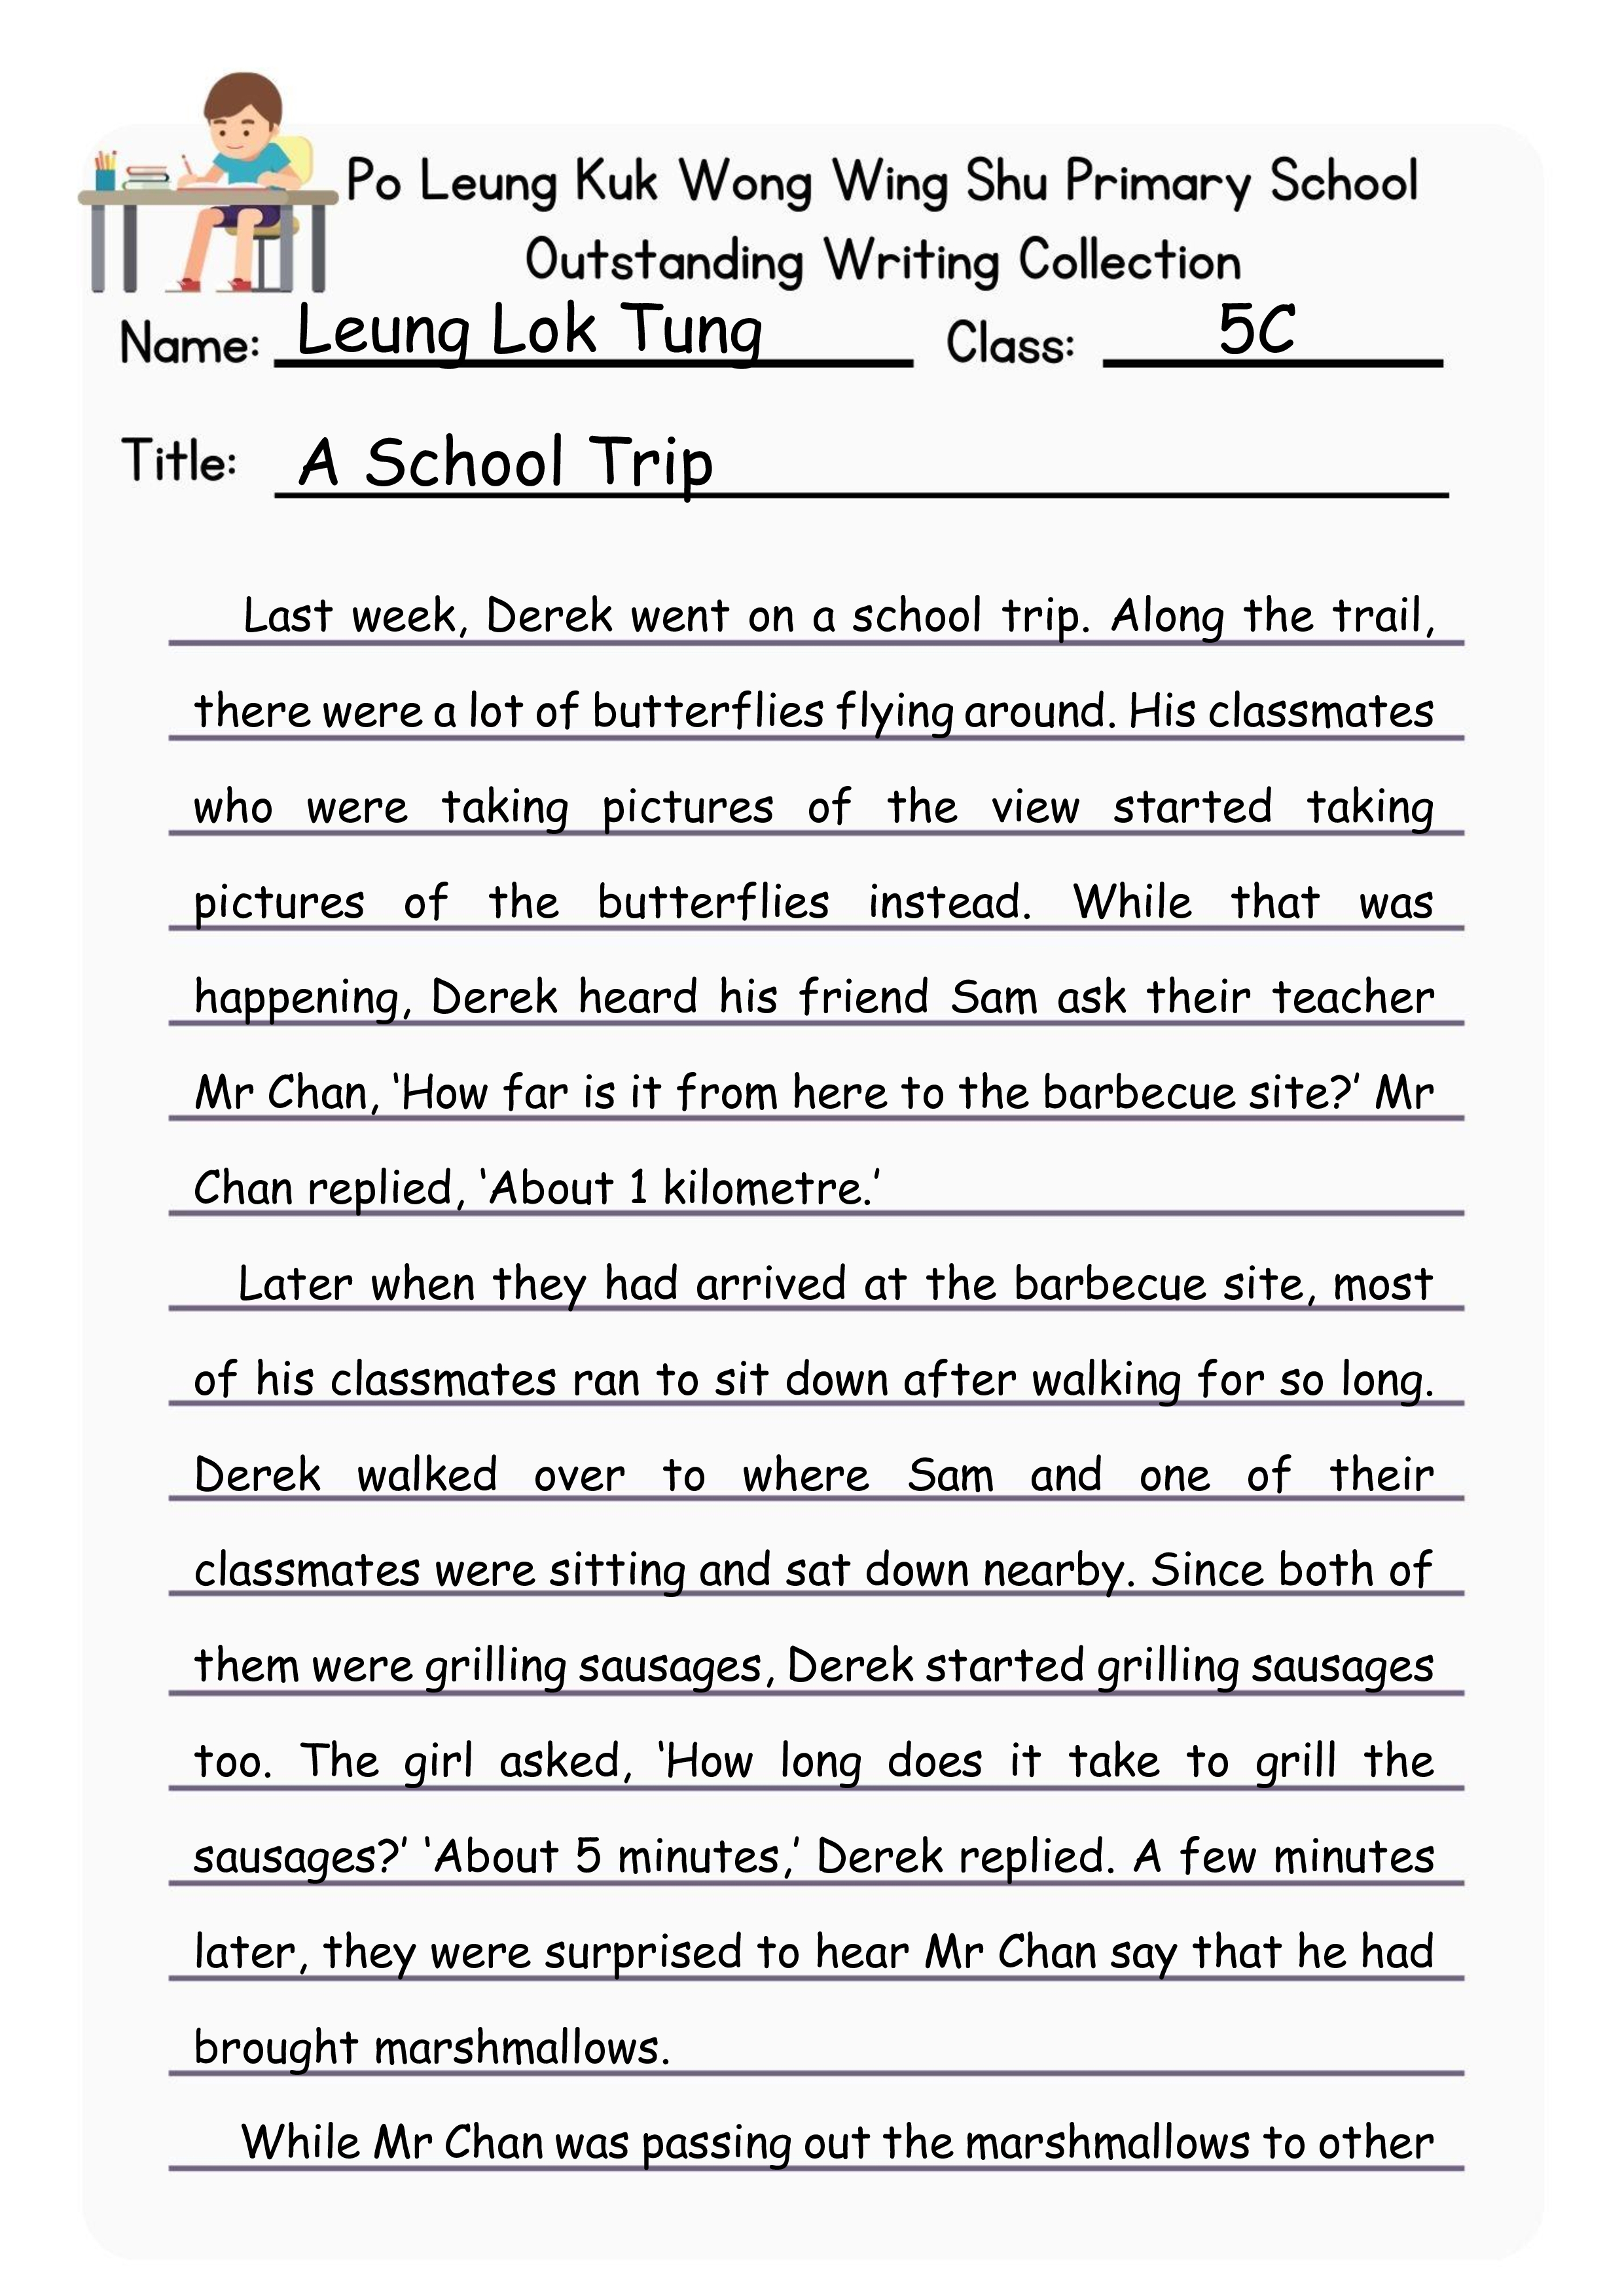 Po Leung Kuk Wong Wing Shu Primary School
Outstanding Writing Collection
Name: Leung Lok Tung Class: 5C
Title: A School Trip
Last week, Derek went on a school trip. Along the trail,
there were a lot of butterflies flying around. His classmates
who were taking pictures of the view started taking
pictures of the butterflies instead. While that was
happening, Derek heard his friend Sam ask their teacher
Mr Chan, ‘How far is it from here to the barbecue site?’ Mr
Chan replied, ‘About 1 kilometre.’
Later when they had arrived at the barbecue site, most
of his classmates ran to sit down after walking for so long.
Derek walked over to where Sam and one of their
classmates were sitting and sat down nearby. Since both of
them were grilling sausages, Derek started grilling sausages
too. The girl asked, ‘How long does it take to grill the
sausages?’ ‘About 5 minutes,’ Derek replied. A few minutes
later, they were surprised to hear Mr Chan say that he had
brought marshmallows.
While Mr Chan was passing out the marshmallows to other